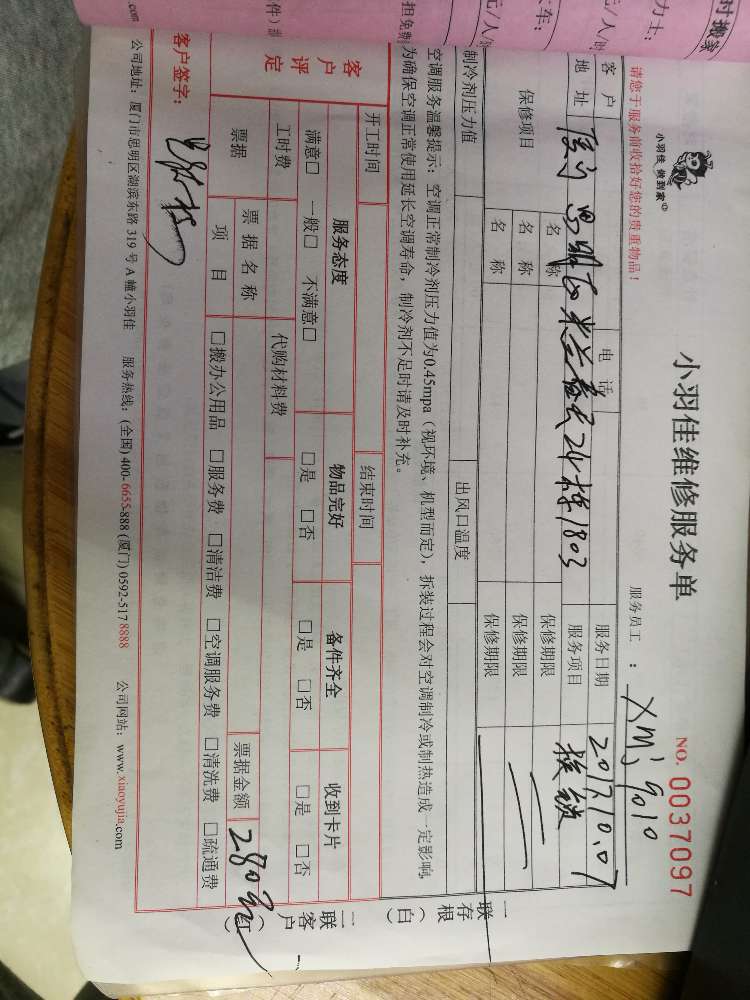 时搬家
力士：
元/人/
车：
担免费
件）
.com
小羽佳 做到家
小羽佳维修服务单
NO. 0037097
请您于服务前收拾好您的贵重物品！
服务员工：XMJ9010
客户 电话 服务日期 2017.10.07
地址 厦门思明区米兰春天24栋1803 服务项目 换锁
保修项目 名称 保修期限
名称 保修期限
名称 保修期限
制冷剂压力值 出风口温度
空调服务温馨提示：空调正常制冷剂压力值为0.45mpa（视环境、机型而定），拆装过程会对空调制冷或制热造成一定影响，
为确保空调正常使用延长空调寿命，制冷剂不足时请及时补充。
开工时间 结束时间
客户评定 服务态度 物品完好 备件齐全 收到卡片
满意□ 一般□ 不满意□ □是 □否 □是 □否 □是 □否
工时费 代购材料费
票据 票据名称 票据金额 280元
项目 □搬办公用品 □服务费 □清洁费 □空调服务费 □清洗费 □疏通费
客户签字：
公司地址：厦门市思明区湖滨东路 319 号 A 幢小羽佳 服务热线：(全国) 400-6655-888 (厦门) 0592-517 8888 公司网站：www.xiaoyujia.com
一联存根（白）
二联客户（红）